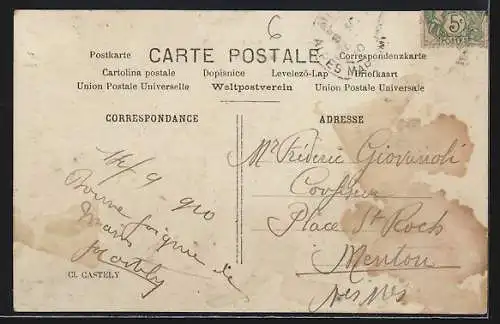 6
Postkarte CARTE POSTALE Correspondenzkarte
Cartolina postale Dopisnice Levelező-Lap Briefkaart
Union Postale Universelle Weltpostverein Union Postale Universale
5c
ALPES MAR
CORRESPONDANCE
910
Bonne poignée de
mains
CL. CASTELY
ADRESSE
Mr Fréderic Giovanoli
Place St Roch
Menton